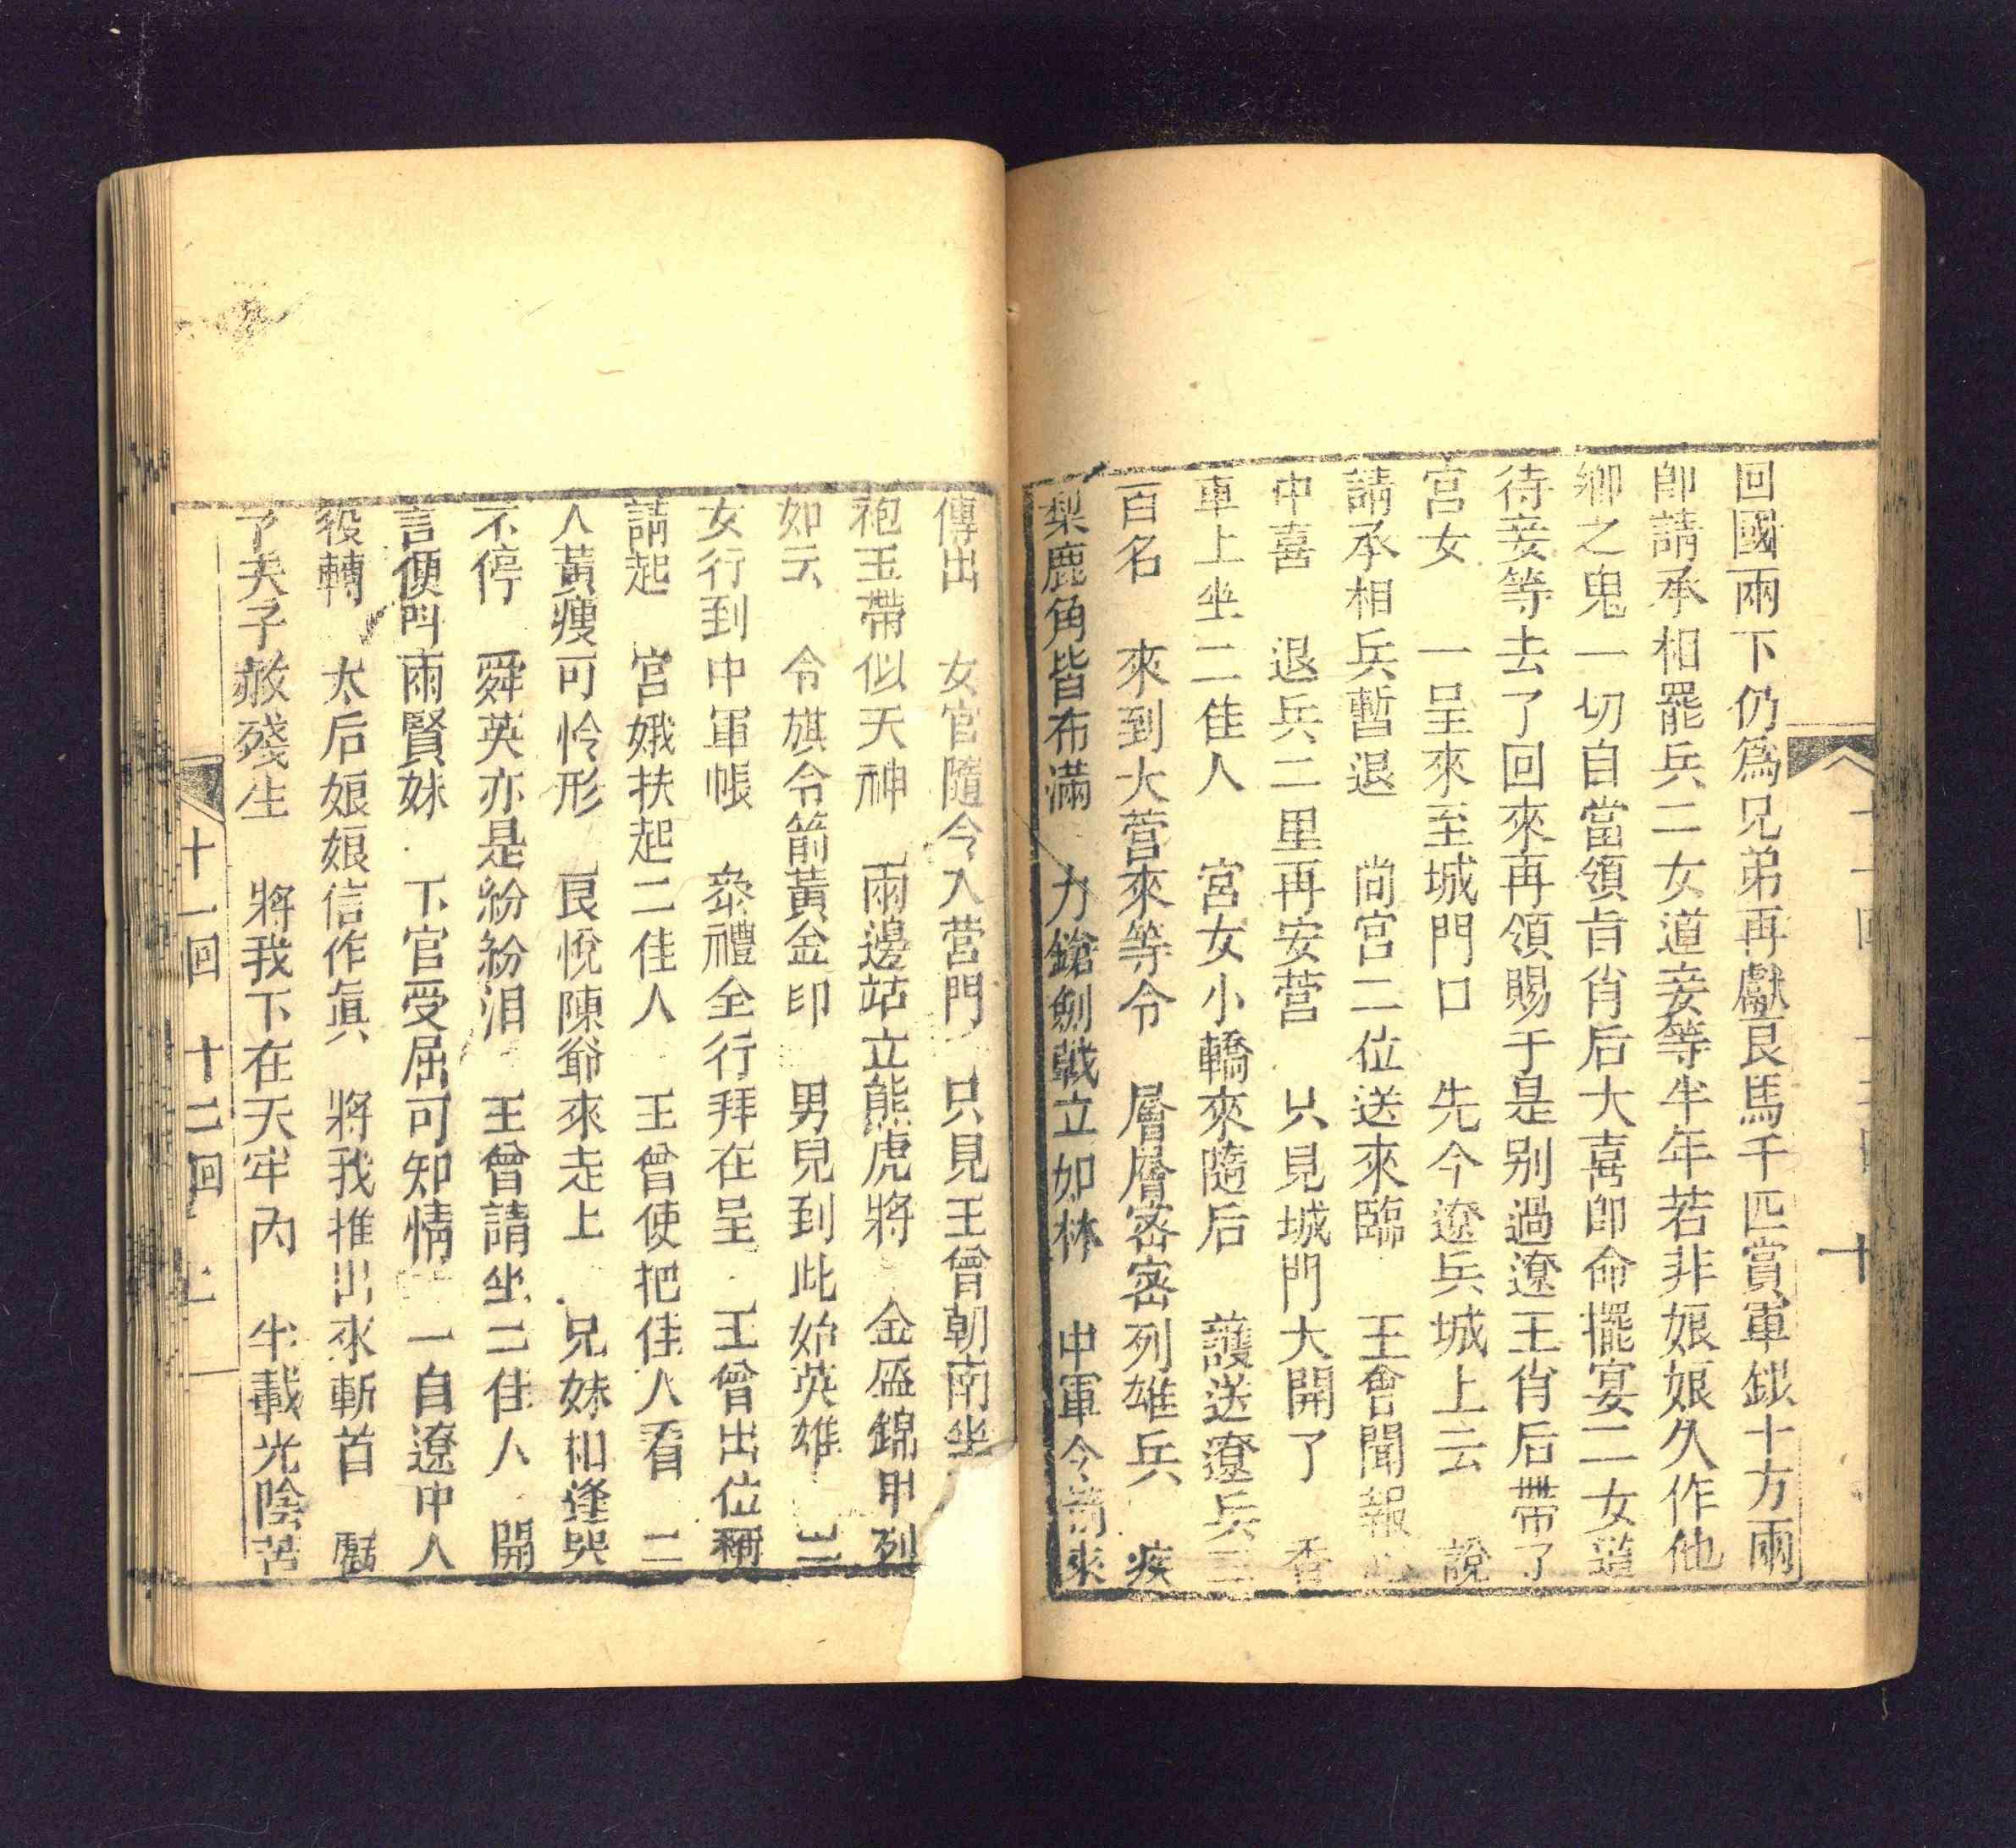 回國兩下仍為兄弟再獻艮馬千匹賞軍銀十方兩
卽請承相罷兵二女道妾等半年若非娘娘久作他
鄉之鬼一切自當領旨肖后大喜卽命擺宴二女道
待妾等去了回來再領賜于是别過遼王肖后帶了
宮女　一呈來至城門口　先今遼兵城上云　說
請承相兵暫退　尚宮二位送來臨　王曾聞報
中喜　退兵二里再安营　只見城門大開了　香
車上坐二佳人　宮女小轎來隨后　護送遼兵三
百名　來到大营來等令　層層密密列雄兵　疾
梨鹿角皆布滿　力鎗劍戟立如林　中軍令箭來
傳出　女官隨令入营門　只見王曾朝南坐
袍玉帶似天神　兩邊站立熊虎將　金盔錦甲列
如云　令旗令箭黃金印　男兒到此始英雄　二
女行到中軍帳　叅禮全行拜在呈　王曾出位稱
請起　宮娥扶起二佳人　王曾使把佳人看　二
人黃瘦可怜形　艮悅陳爺來走上　兄妹相逢哭
不停　舜英亦是紛紛泪　王曾請坐二佳人　開
言便叫兩賢妹　下官受屈可知情　一自遼中人
役轉　太后娘娘信作眞　將我推出來斬首　虧
了夫子赦殘生　將我下在天牢內　半載光陰苦
十一回　十二回